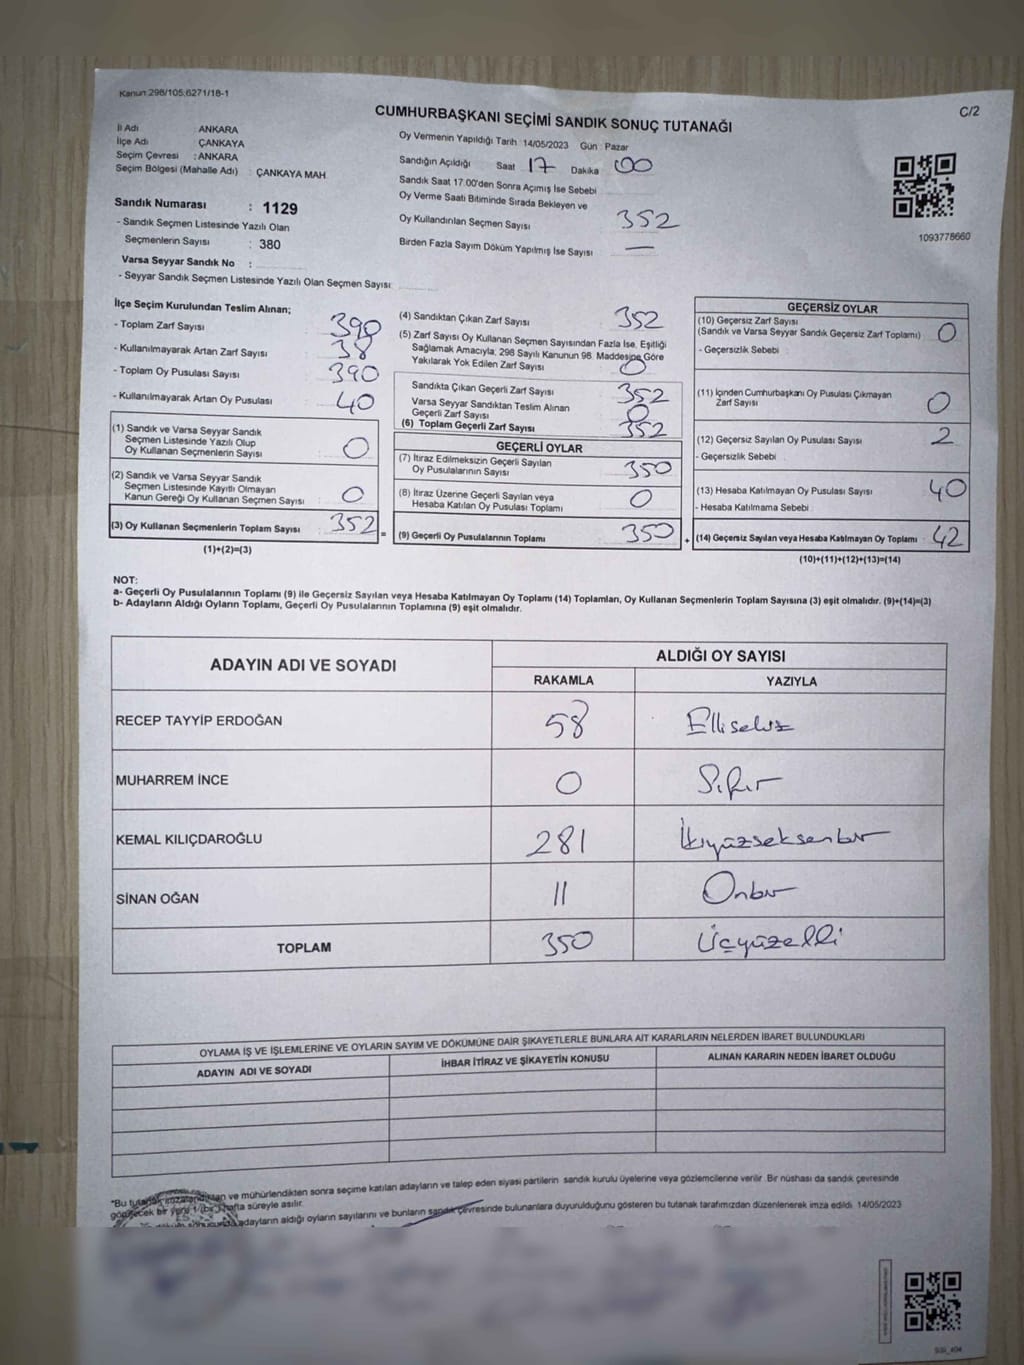 Kanun 298/105,6271/18-1
C/2
CUMHURBAŞKANI SEÇİMİ SANDIK SONUÇ TUTANAĞI
İl Adı ANKARA
İlçe Adı ÇANKAYA
Seçim Çevresi : ANKARA
Seçim Bölgesi (Mahalle Adı) ÇANKAYA MAH
Oy Vermenin Yapıldığı Tarih 14/05/2023 Gün : Pazar
Sandığın Açıldığı Saat 17 Dakika 00
Sandık Saat 17.00'den Sonra Açımış İse Sebebi
Oy Verme Saati Bitiminde Sırada Bekleyen ve
Oy Kullandırılan Seçmen Sayısı 352
Birden Fazla Sayım Döküm Yapılmış İse Sayısı —
1093778660
Sandık Numarası : 1129
- Sandık Seçmen Listesinde Yazılı Olan
Seçmenlerin Sayısı : 380
Varsa Seyyar Sandık No :
- Seyyar Sandık Seçmen Listesinde Yazılı Olan Seçmen Sayısı:
İlçe Seçim Kurulundan Teslim Alınan;
- Toplam Zarf Sayısı 390
- Kullanılmayarak Artan Zarf Sayısı 38
- Toplam Oy Pusulası Sayısı 390
- Kullanılmayarak Artan Oy Pusulası 40
(1) Sandık ve Varsa Seyyar Sandık
Seçmen Listesinde Yazılı Olup
Oy Kullanan Seçmenlerin Sayısı 0
(2) Sandık ve Varsa Seyyar Sandık
Seçmen Listesinde Kayıtlı Olmayan
Kanun Gereği Oy Kullanan Seçmen Sayısı 0
(3) Oy Kullanan Seçmenlerin Toplam Sayısı 352 =
(1)+(2)=(3)
(4) Sandıktan Çıkan Zarf Sayısı 352
(5) Zarf Sayısı Oy Kullanan Seçmen Sayısından Fazla İse, Eşitliği
Sağlamak Amacıyla, 298 Sayılı Kanunun 98. Maddesine Göre
Yakılarak Yok Edilen Zarf Sayısı 0
Sandıkta Çıkan Geçerli Zarf Sayısı 352
Varsa Seyyar Sandıktan Teslim Alınan
Geçerli Zarf Sayısı 0
(6) Toplam Geçerli Zarf Sayısı 352
GEÇERLİ OYLAR
(7) İtiraz Edilmeksizin Geçerli Sayılan
Oy Pusulalarının Sayısı 350
(8) İtiraz Üzerine Geçerli Sayılan veya
Hesaba Katılan Oy Pusulası Toplamı 0
(9) Geçerli Oy Pusulalarının Toplamı 350 +
GEÇERSİZ OYLAR
(10) Geçersiz Zarf Sayısı
(Sandık ve Varsa Seyyar Sandık Geçersiz Zarf Toplamı) 0
- Geçersizlik Sebebi
(11) İçinden Cumhurbaşkanı Oy Pusulası Çıkmayan
Zarf Sayısı 0
(12) Geçersiz Sayılan Oy Pusulası Sayısı 2
- Geçersizlik Sebebi
(13) Hesaba Katılmayan Oy Pusulası Sayısı 40
- Hesaba Katılmama Sebebi
(14) Geçersiz Sayılan veya Hesaba Katılmayan Oy Toplamı 42
(10)+(11)+(12)+(13)=(14)
NOT:
a- Geçerli Oy Pusulalarının Toplamı (9) ile Geçersiz Sayılan veya Hesaba Katılmayan Oy Toplamı (14) Toplamları, Oy Kullanan Seçmenlerin Toplam Sayısına (3) eşit olmalıdır. (9)+(14)=(3)
b- Adayların Aldığı Oyların Toplamı, Geçerli Oy Pusulalarının Toplamına (9) eşit olmalıdır.
ADAYIN ADI VE SOYADI
ALDIĞI OY SAYISI
RAKAMLA YAZIYLA
RECEP TAYYİP ERDOĞAN 58 Ellisekiz
MUHARREM İNCE 0 Sıfır
KEMAL KILIÇDAROĞLU 281 İkiyüzseksenbir
SİNAN OĞAN 11 Onbir
TOPLAM 350 Üçyüzelli
OYLAMA İŞ VE İŞLEMLERİNE VE OYLARIN SAYIM VE DÖKÜMÜNE DAİR ŞİKAYETLERLE BUNLARA AİT KARARLARIN NELERDEN İBARET BULUNDUKLARI
ADAYIN ADI VE SOYADI İHBAR İTİRAZ VE ŞİKAYETİN KONUSU ALINAN KARARIN NEDEN İBARET OLDUĞU
*Bu tutanak imzalandıktan ve mühürlendikten sonra seçime katılan adayların ve talep eden siyasi partilerin sandık kurulu üyelerine veya gözlemcilerine verilir. Bir nüshası da sandık çevresinde
görülecek bir yere 1 (bir) hafta süreyle asılır.
adayların aldığı oyların sayılarını ve bunların sandık çevresinde bulunanlara duyurulduğunu gösteren bu tutanak tarafımızdan düzenlenerek imza edildi. 14/05/2023